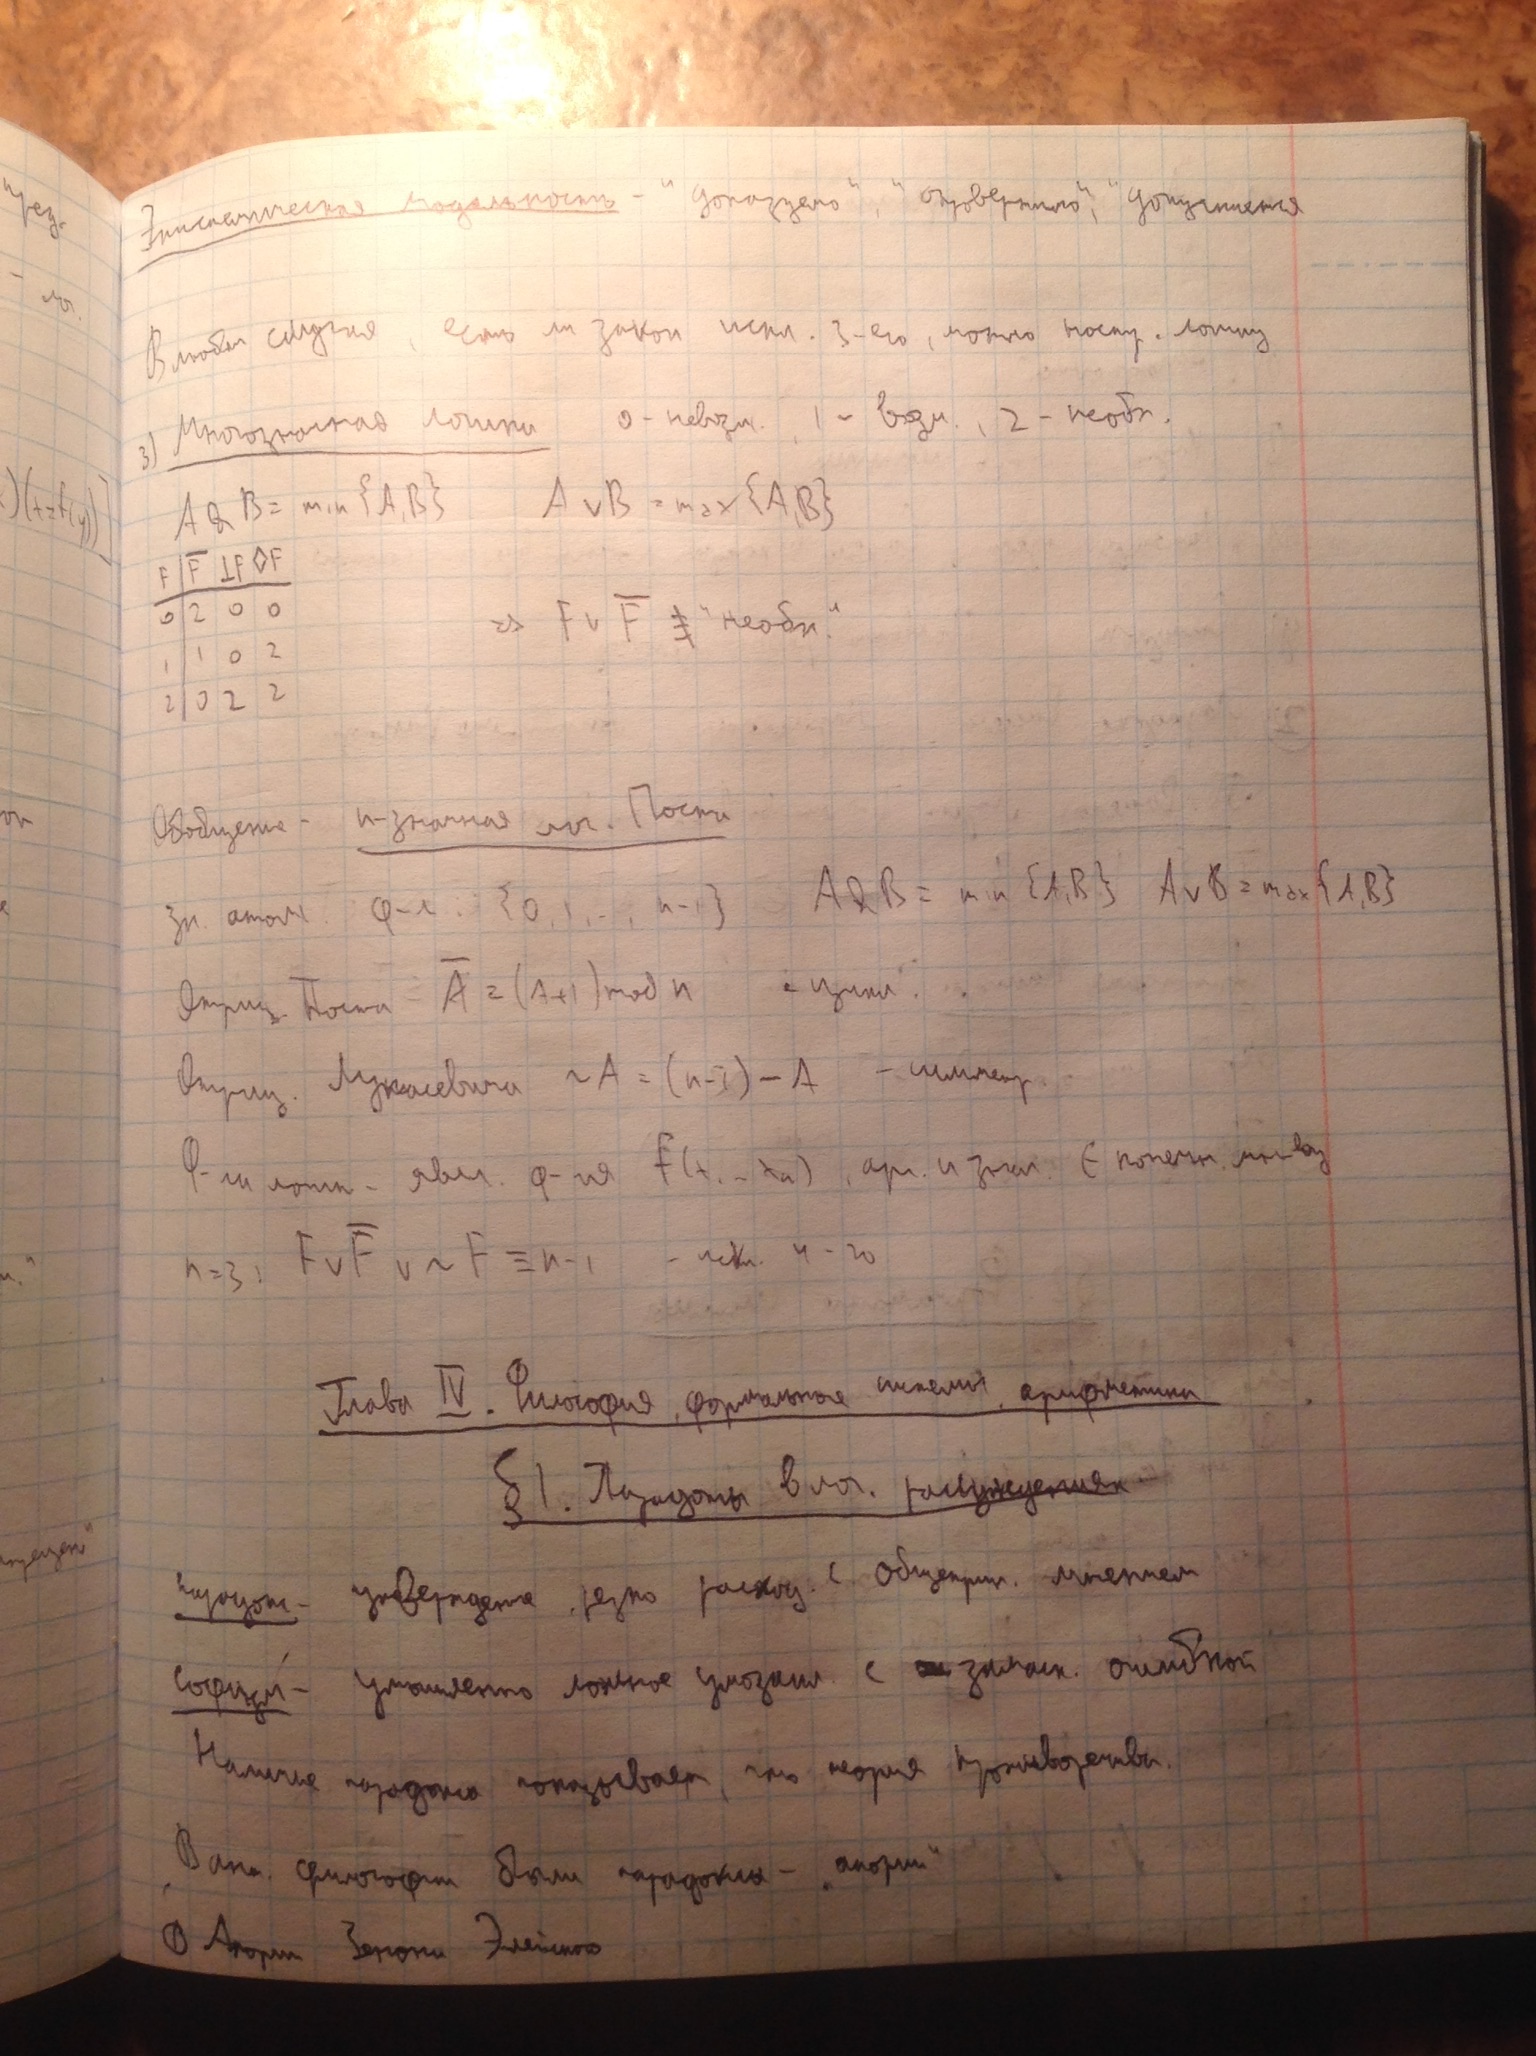 Эпистемическая модальность - "доказуемо", "опровержимо", "допускается
В любом случае, есть ли закон искл. 3-его, можно постр. логику
3) Многозначная логика 0 - невозм., 1 - возм., 2 - необх.
A & B = min {A,B} A ∨ B = max {A,B}
F | F̅ ⊥F ◊F
0 | 2 0 0
⇒ F ∨ F̅ ≢ "необх."
1 | 1 0 2
2 | 0 2 2
Обобщение - n-значная лог. Поста
Зн. атом. ф-л: {0, 1, .., n-1} A & B = min {A,B} A ∨ B = max {A,B}
Отриц. Поста A̅ = (A+1) mod n - цикл.
Отриц. Лукасевича ~A = (n-1) - A - симметр.
Ф-ии логики - явл. ф-ия , арг. и знач. ∈ конечн. мн-ву
n=3: F ∨ F̅ ∨ ~F ≡ n-1 - искл. 4-го
Глава IV. Философия, формальные системы, арифметика
§1. Парадоксы в лог. рассуждениях
парадокс - утверждение, резко расход. с общеприн. мнением
Софизм - умышленно ложное умозакл. с замаск. ошибкой
Наличие парадокса показывает, что теория противоречива.
В ант. философии были парадоксы - "апории"
① Апории Зенона Элейского
през.
- лог.
)(t=f(y))]